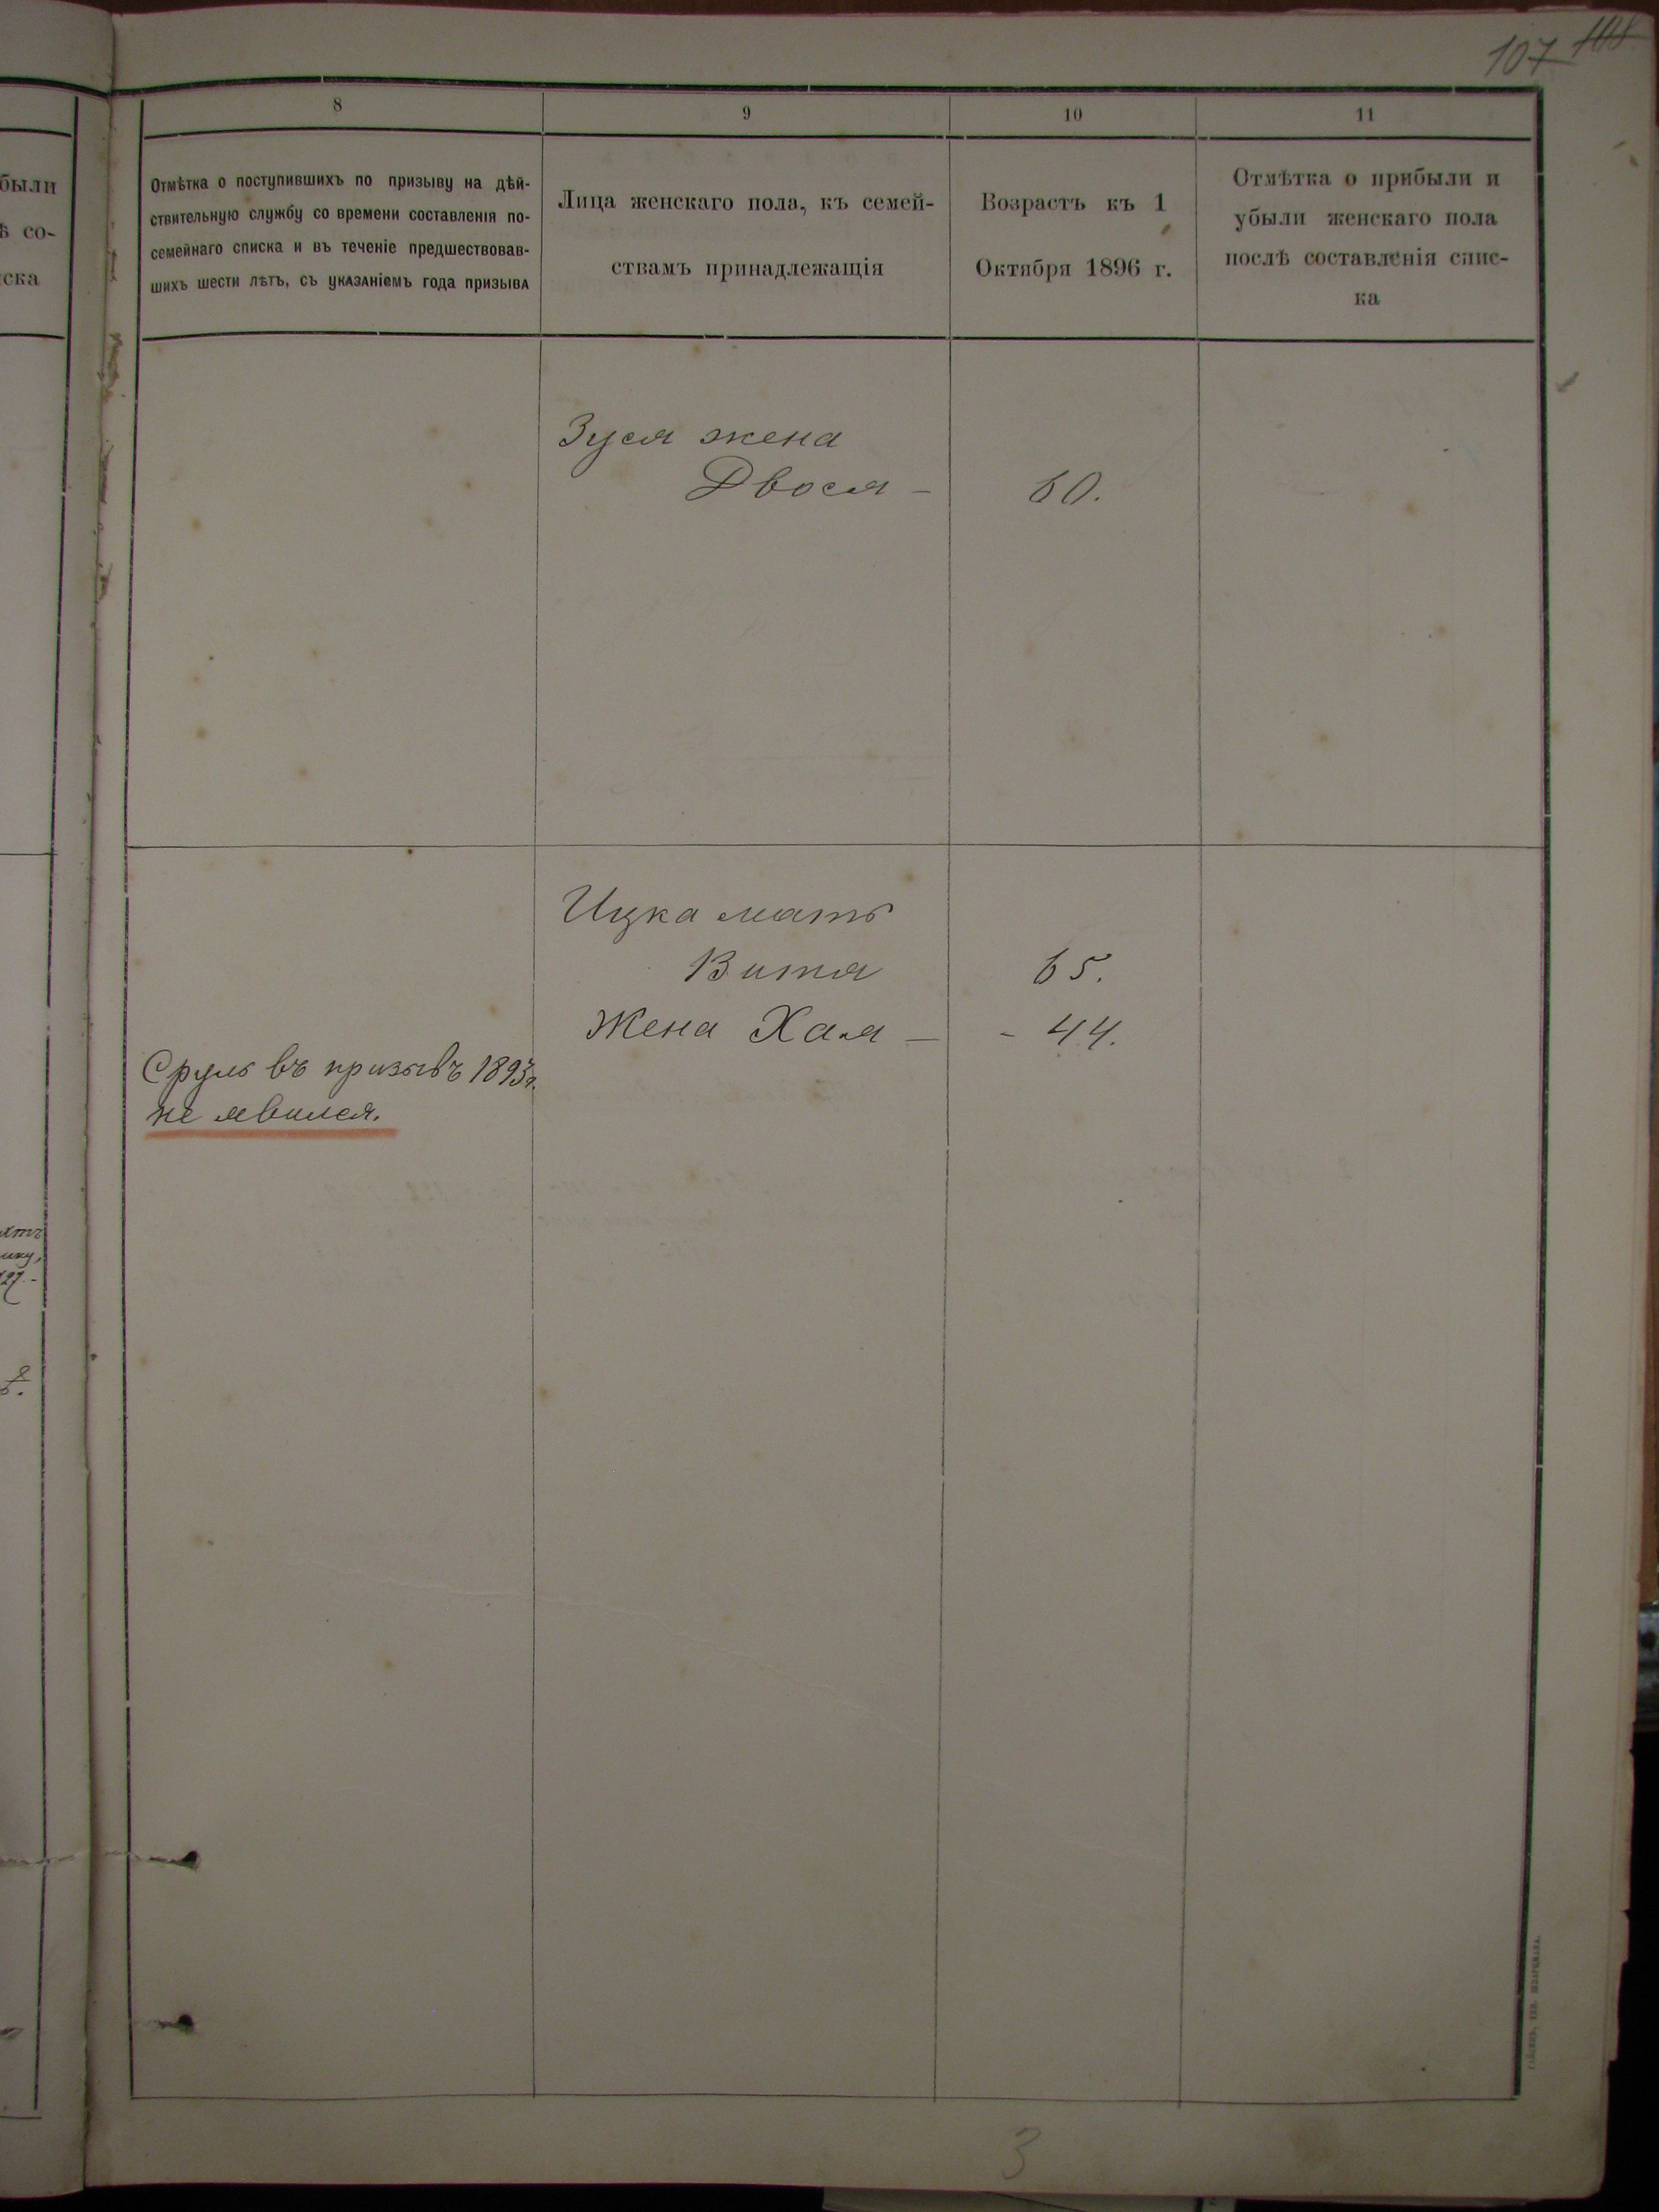 107 108
были
ѣ со-
ска
8
9
10
11
Отмѣтка о поступившихъ по призыву на дѣй-
ствительную службу со времени составленія по-
семейнаго списка и въ теченіе предшествовав-
шихъ шести лѣтъ, съ указаніемъ года призыва
Лица женскаго пола, къ семей-
ствамъ принадлежащія
Возрастъ къ 1
Октября 1896 г.
Отмѣтка о прибыли и
убыли женскаго пола
послѣ составленія спис-
ка
Зуся жена
Двося — 60.
Ицка мать
Витя 65.
Жена Хая — - 44.
Сруль въ призывъ 1893 г.
не явился.
3